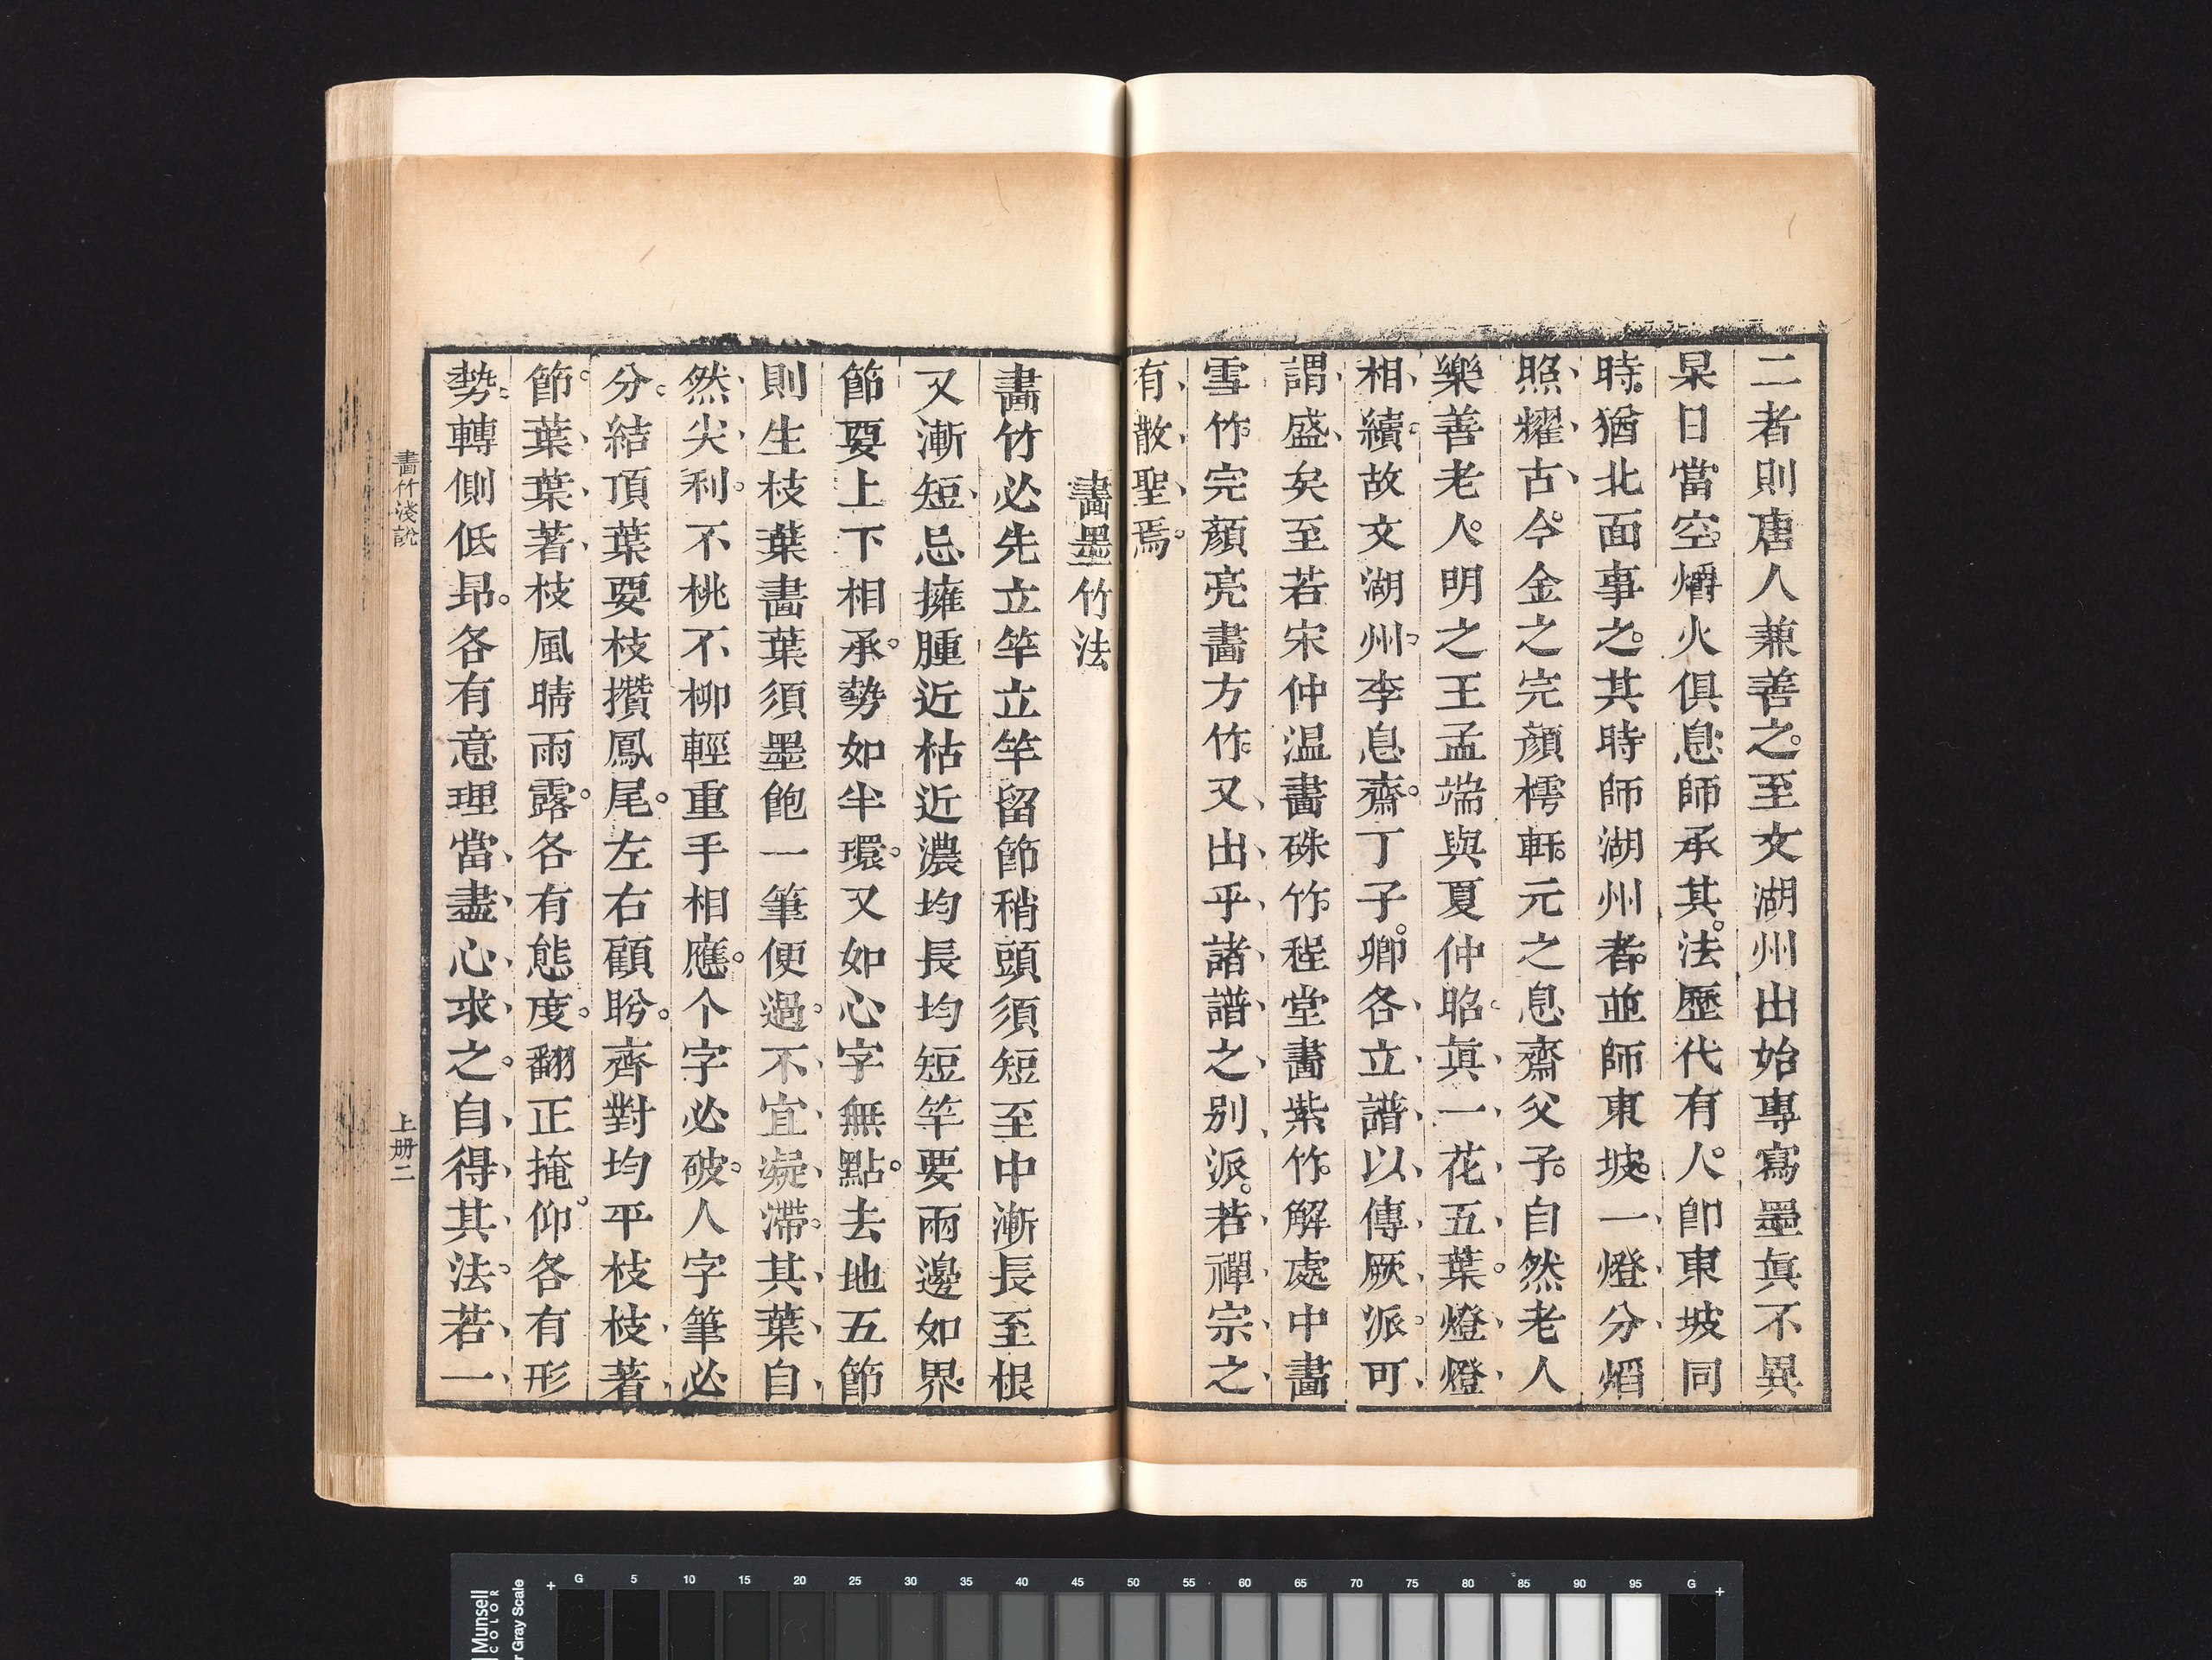 二者則唐人兼善之。至文湖州出始專寫墨眞不異
杲日當空。爝火俱息。師承其。法歷代有人。卽東坡同
時。猶北面事之。其時師湖州者。並師東坡。一燈分熖
照耀古。今。金之完顏樗軒。元之息齋父子。自然老人
樂善老人。明之王孟端與夏仲昭。眞一花五葉。燈燈
相續。故文湖州。李息齋。丁子。卿各立譜以傳厥派。可
謂盛矣至若宋仲温畵硃竹。程堂畵紫竹。解處中畵
雪竹。完顏亮畵方竹。又出乎諸譜之别派。若禪宗之
有散聖焉。
畵墨竹法
畵竹必先立竿立竿留節稍頭須短至中漸長至根
又漸短忌擁腫近枯近濃均長均短竿要兩邊如界
節要上下相承。勢如半環。又如心字無點。去地五節
則生枝葉畵葉須墨飽一筆便過。不宜凝滯。其葉自
然尖利。不桃不柳輕重手相應。个字必破。人字筆必
分。結頂葉要枝攢鳳尾。左右顧盻。齊對均平枝枝著
節。葉葉著枝風晴雨露。各有態度。翻正掩。仰各有形
勢。轉側低昻。各有意理當盡心求之。自得其法。若一
畵竹淺說
上册二
G 5 10 15 20 25 30 35 40 45 50 55 60 65 70 75 80 85 90 95 G
Munsell
COLOR
r Gray Scale